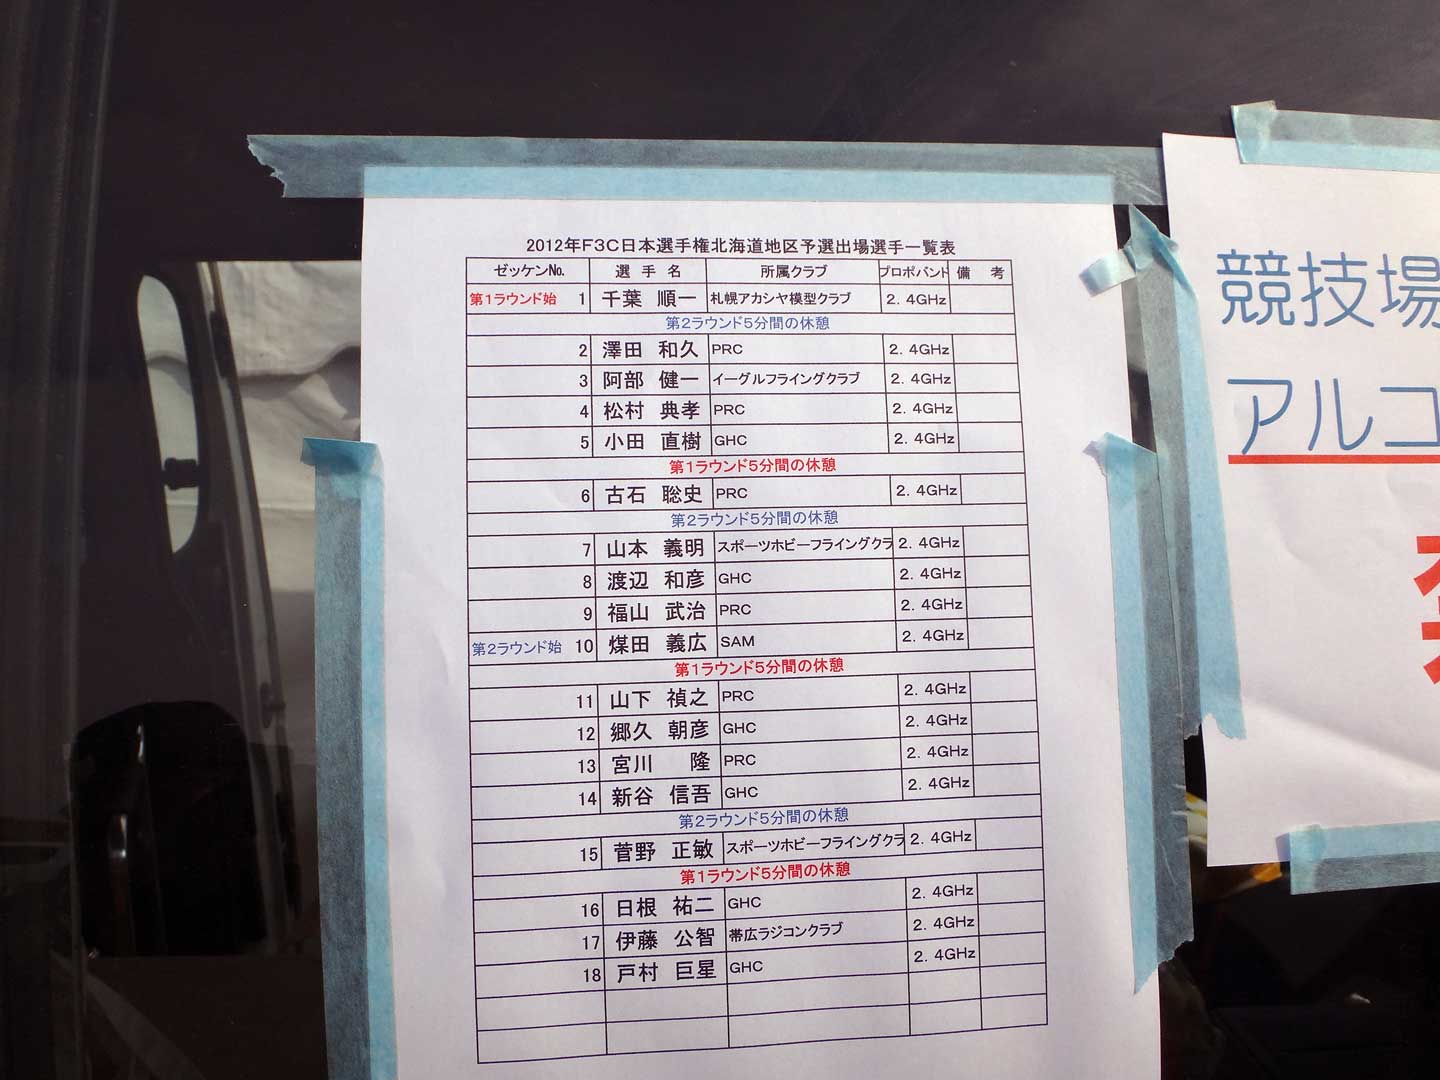 2012年F3C日本選手権北海道地区予選出場選手一覧表
ゼッケンNo. 選手名 所属クラブ プロポバンド 備考
第1ラウンド始 1 千葉 順一 札幌アカシヤ模型クラブ 2.4GHz
第2ラウンド5分間の休憩
2 澤田 和久 PRC 2.4GHz
3 阿部 健一 イーグルフライングクラブ 2.4GHz
4 松村 典孝 PRC 2.4GHz
5 小田 直樹 GHC 2.4GHz
第1ラウンド5分間の休憩
6 古石 聡史 PRC 2.4GHz
第2ラウンド5分間の休憩
7 山本 義明 スポーツホビーフライングクラ 2.4GHz
8 渡辺 和彦 GHC 2.4GHz
9 福山 武治 PRC 2.4GHz
第2ラウンド始 10 煤田 義広 SAM 2.4GHz
第1ラウンド5分間の休憩
11 山下 禎之 PRC 2.4GHz
12 郷久 朝彦 GHC 2.4GHz
13 宮川 隆 PRC 2.4GHz
14 新谷 信吾 GHC 2.4GHz
第2ラウンド5分間の休憩
15 菅野 正敏 スポーツホビーフライングクラ 2.4GHz
第1ラウンド5分間の休憩
16 日根 祐二 GHC 2.4GHz
17 伊藤 公智 帯広ラジコンクラブ 2.4GHz
18 戸村 巨星 GHC 2.4GHz
競技場
アルコ